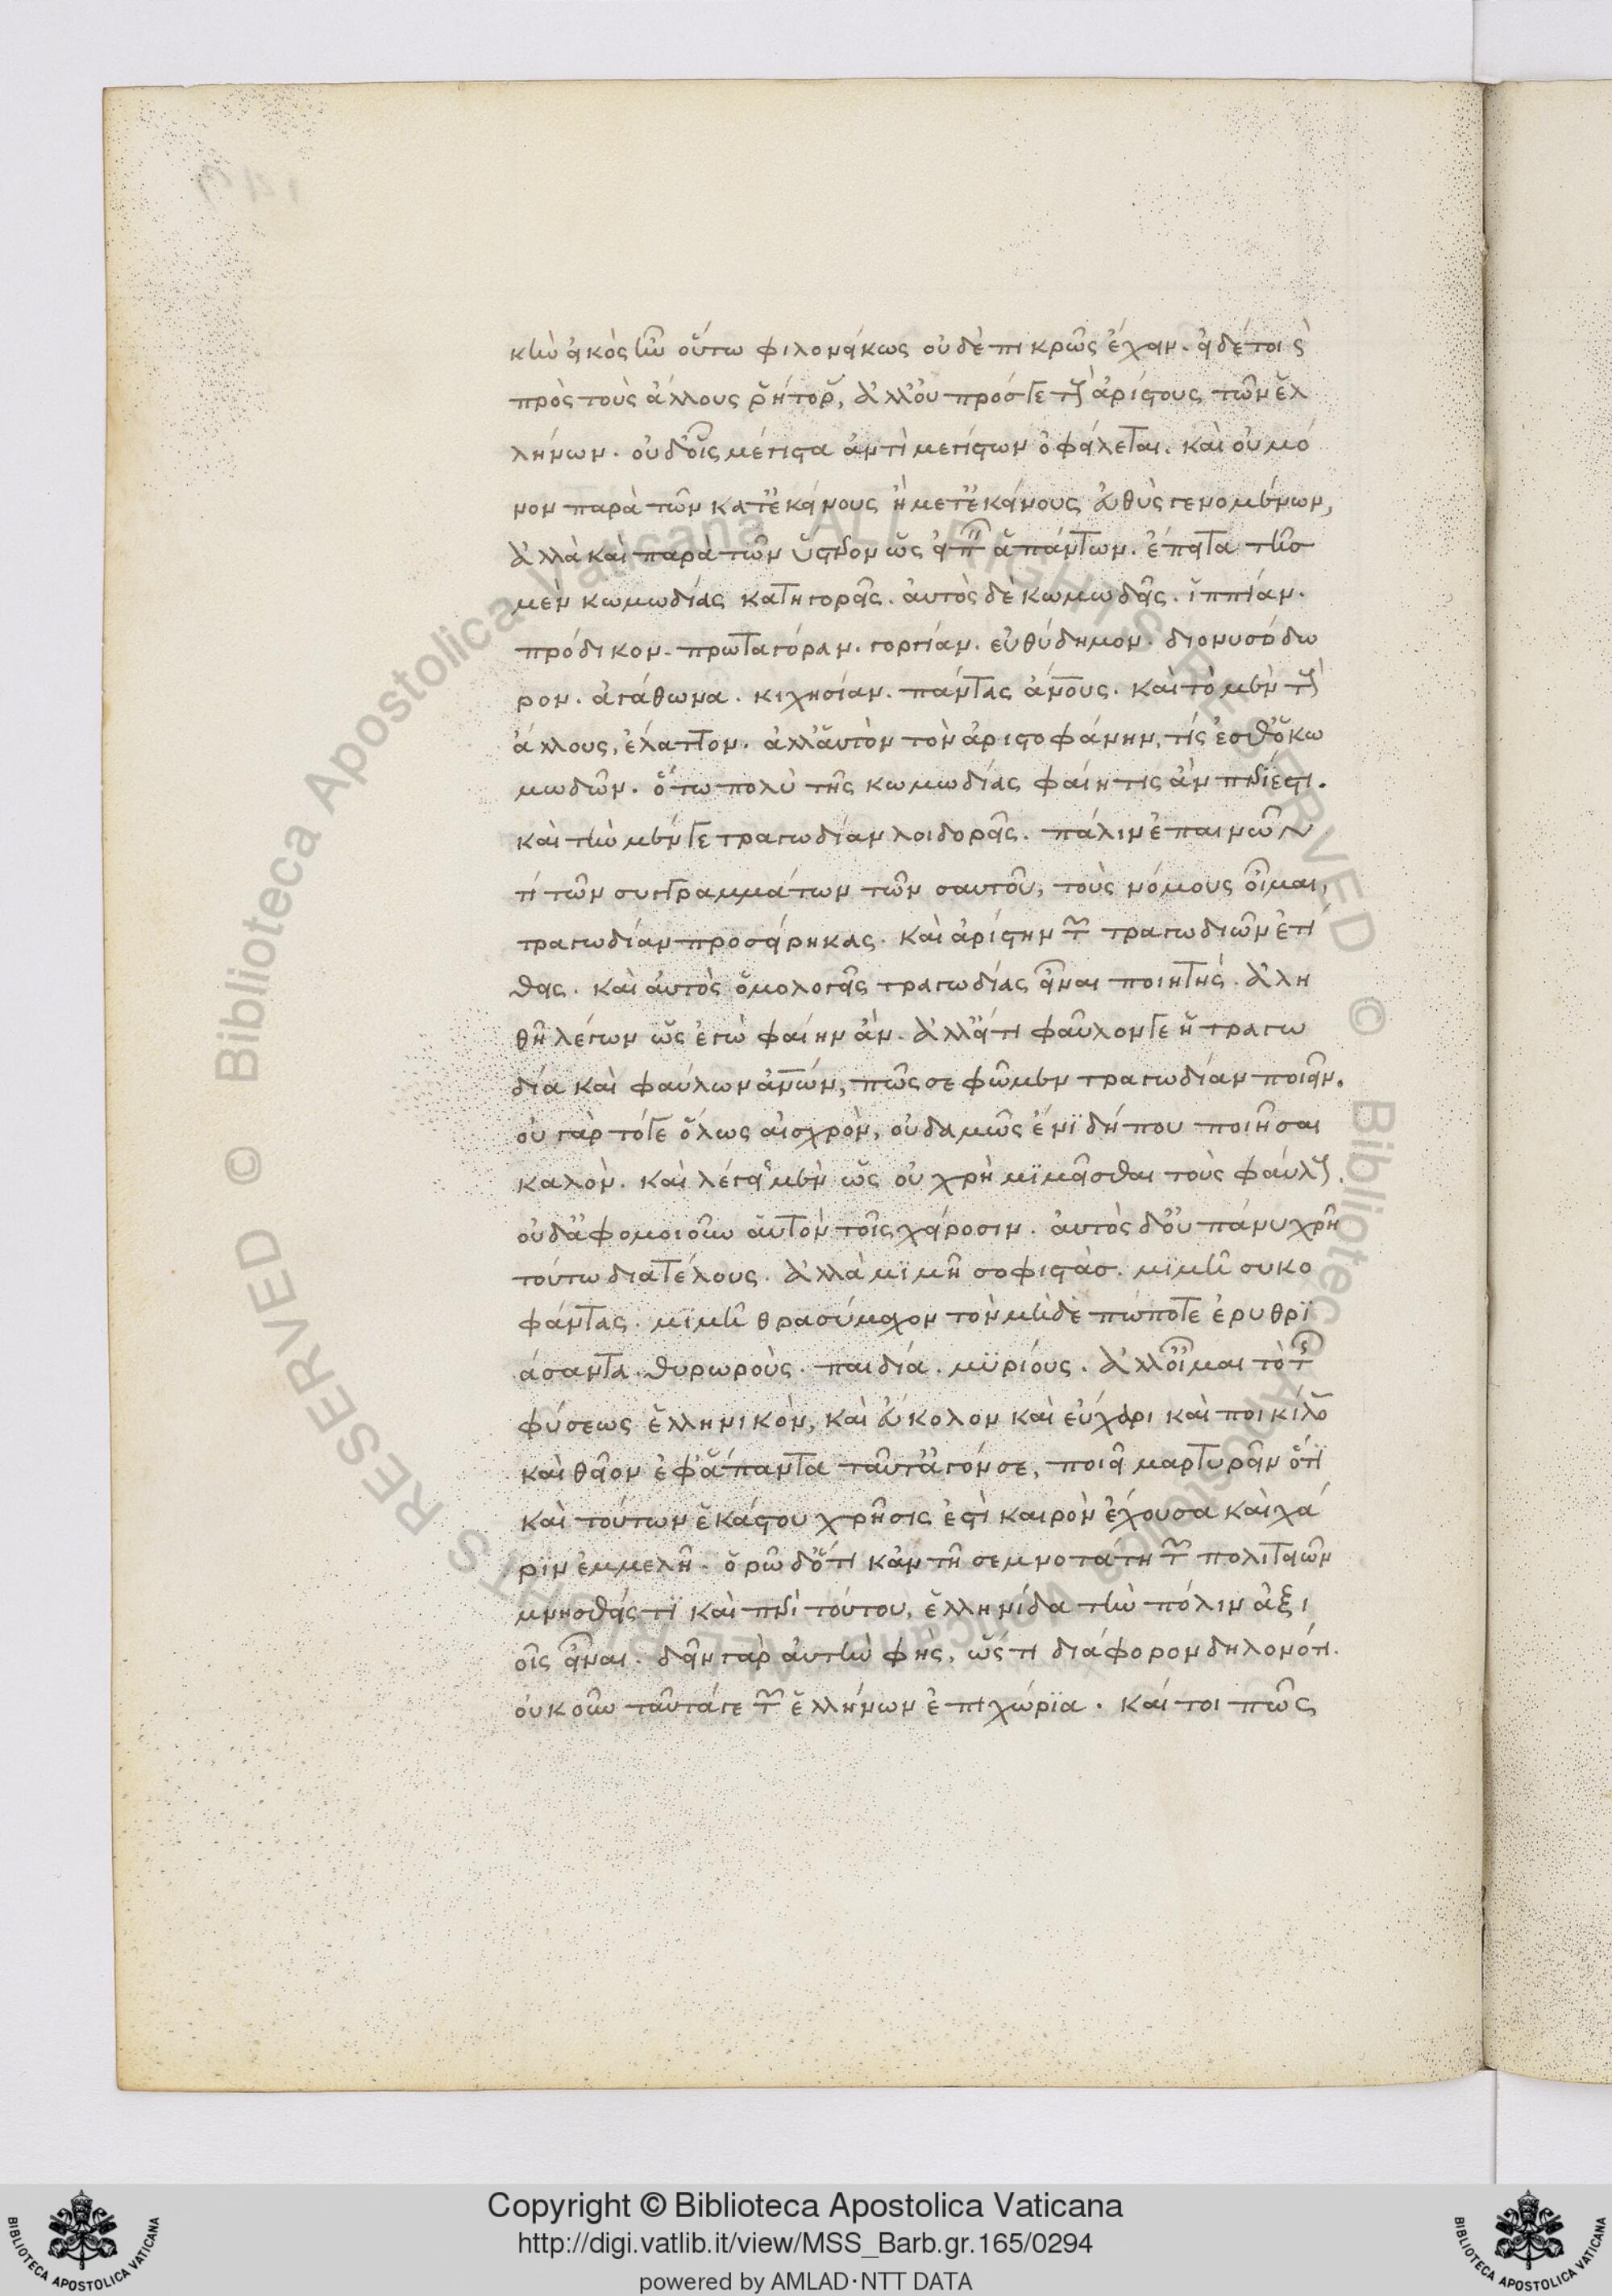 κὴν εἰκὸς ἦν οὕτω φιλονείκως οὐδὲ πικρῶς ἔχειν. εἰ δέ τοις
πρὸς τοὺς ἄλλους ῥήτορας, ἀλλ' οὐ πρός γε τοὺς ἀρίστους τῶν ἑλ
λήνων. οὐδ' οἷς μέγιστα ἀντὶ μεγίστων ὀφείλεται. καὶ οὐ μό
νον παρὰ τῶν κατ' ἐκείνους ἢ μετ' ἐκείνους εὐθὺς γενομένων,
ἀλλὰ καὶ παρὰ τῶν ὕστερον ὡς εἰπεῖν ἁπάντων. ἔπειτα τῆς
μὲν κωμωδίας κατηγορεῖς. αὐτὸς δὲ κωμωδεῖς. ἱππίαν.
πρόδικον. πρωταγόραν. γοργίαν. εὐθύδημον. διονυσόδω
ρον. ἀγάθωνα. κιχησίαν. πάντας ἀνους. καὶ τὸ μὲν τοὺς
ἄλλους, ἔλαττον. ἀλλ' αὐτὸν τὸν ἀριστοφάνην, τίς ἐσθ' ὁ κω
μωδῶν. ὅτω πολὺ τῆς κωμωδίας φαίη τις ἂν περίεστι.
καὶ τὴν μέν γε τραγωδίαν λοιδορεῖς. πάλιν ἐπαινῶν
τί τῶν συγγραμμάτων τῶν σαυτοῦ, τοὺς νόμους οἶμαι,
τραγωδίαν προσείρηκας. καὶ ἀρίστην τῶν τραγωδιῶν ἐτί
θεις. καὶ αὐτὸς ὁμολογεῖς τραγωδίας εἶναι ποιητής. ἀλη
θῆ λέγων ὡς ἐγὼ φαίην ἄν. ἀλλ' εἴ τι φαῦλόν γε ἡ τραγω
δία καὶ φαύλων ἀνων, πῶς σε φῶμεν τραγωδίαν ποιεῖν.
οὐ γὰρ τό γε ὅλως αἰσχρὸν, οὐδαμῶς ἔνι δήπου ποιῆσαι
καλὸν. καὶ λέγεις μὲν ὡς οὐ χρὴ μιμεῖσθαι τοὺς φαύλους.
οὐδ' ἀφομοιοῦν αὑτὸν τοῖς χείροσιν. αὐτὸς δ' οὐ πάνυ χρῆ
τούτω διατέλους. ἀλλὰ μιμῆ σοφιστάς. μιμῆ συκο
φάντας. μιμῆ θρασύμαχον τὸν μηδὲ πώποτε ἐρυθρι
άσαντα. θυρωροὺς. παιδία. μυρίους. ἀλλ' οἶμαι τὸ τῆς
φύσεως ἑλληνικὸν, καὶ εὔκολον καὶ εὔχαρι καὶ ποικίλον
καὶ θεῖον ἐφ' ἅπαντα ταῦτ' ἄγον σε, ποιεῖ μαρτυρεῖν ὅτι
καὶ τούτων ἑκάστου χρῆσις ἐστὶ καιρὸν ἔχουσα καὶ χά
ριν ἐμμελῆ. ὁρῶ δ' ὅτι κἀν τῆ σεμνοτάτη τῶν πολιτειῶν
μνησθείς τι καὶ περὶ τούτου, ἑλληνίδα τὴν πόλιν ἀξι
οῖς εἶναι. δεῖν γὰρ αὐτὴν φής, ὥς τι διάφορον δηλονότι.
οὐκοῦν ταῦτά γε τῶν ἑλλήνων ἐπιχώρια. καί τοι πῶς
Copyright © Biblioteca Apostolica Vaticana
http://digi.vatlib.it/view/MSS_Barb.gr.165/0294
powered by AMLAD·NTT DATA